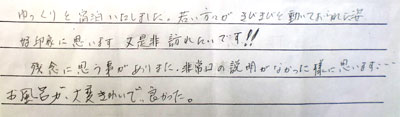 ゆっくりと宿泊いたしました。若い方々がきびきびと動いておられた姿
好印象に思います 又是非訪れたいです!!
残念に思う事がありました、非常口の説明がなかった様に思います…
お風呂が、大変きれいで、良かった。